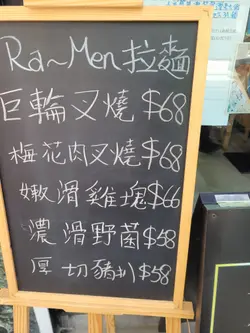 Ra~Men 拉麵
巨輪叉燒 $68
梅花肉叉燒 $68
嫩滑雞塊 $66
濃滑野菌 $58
厚切豬扒 $58